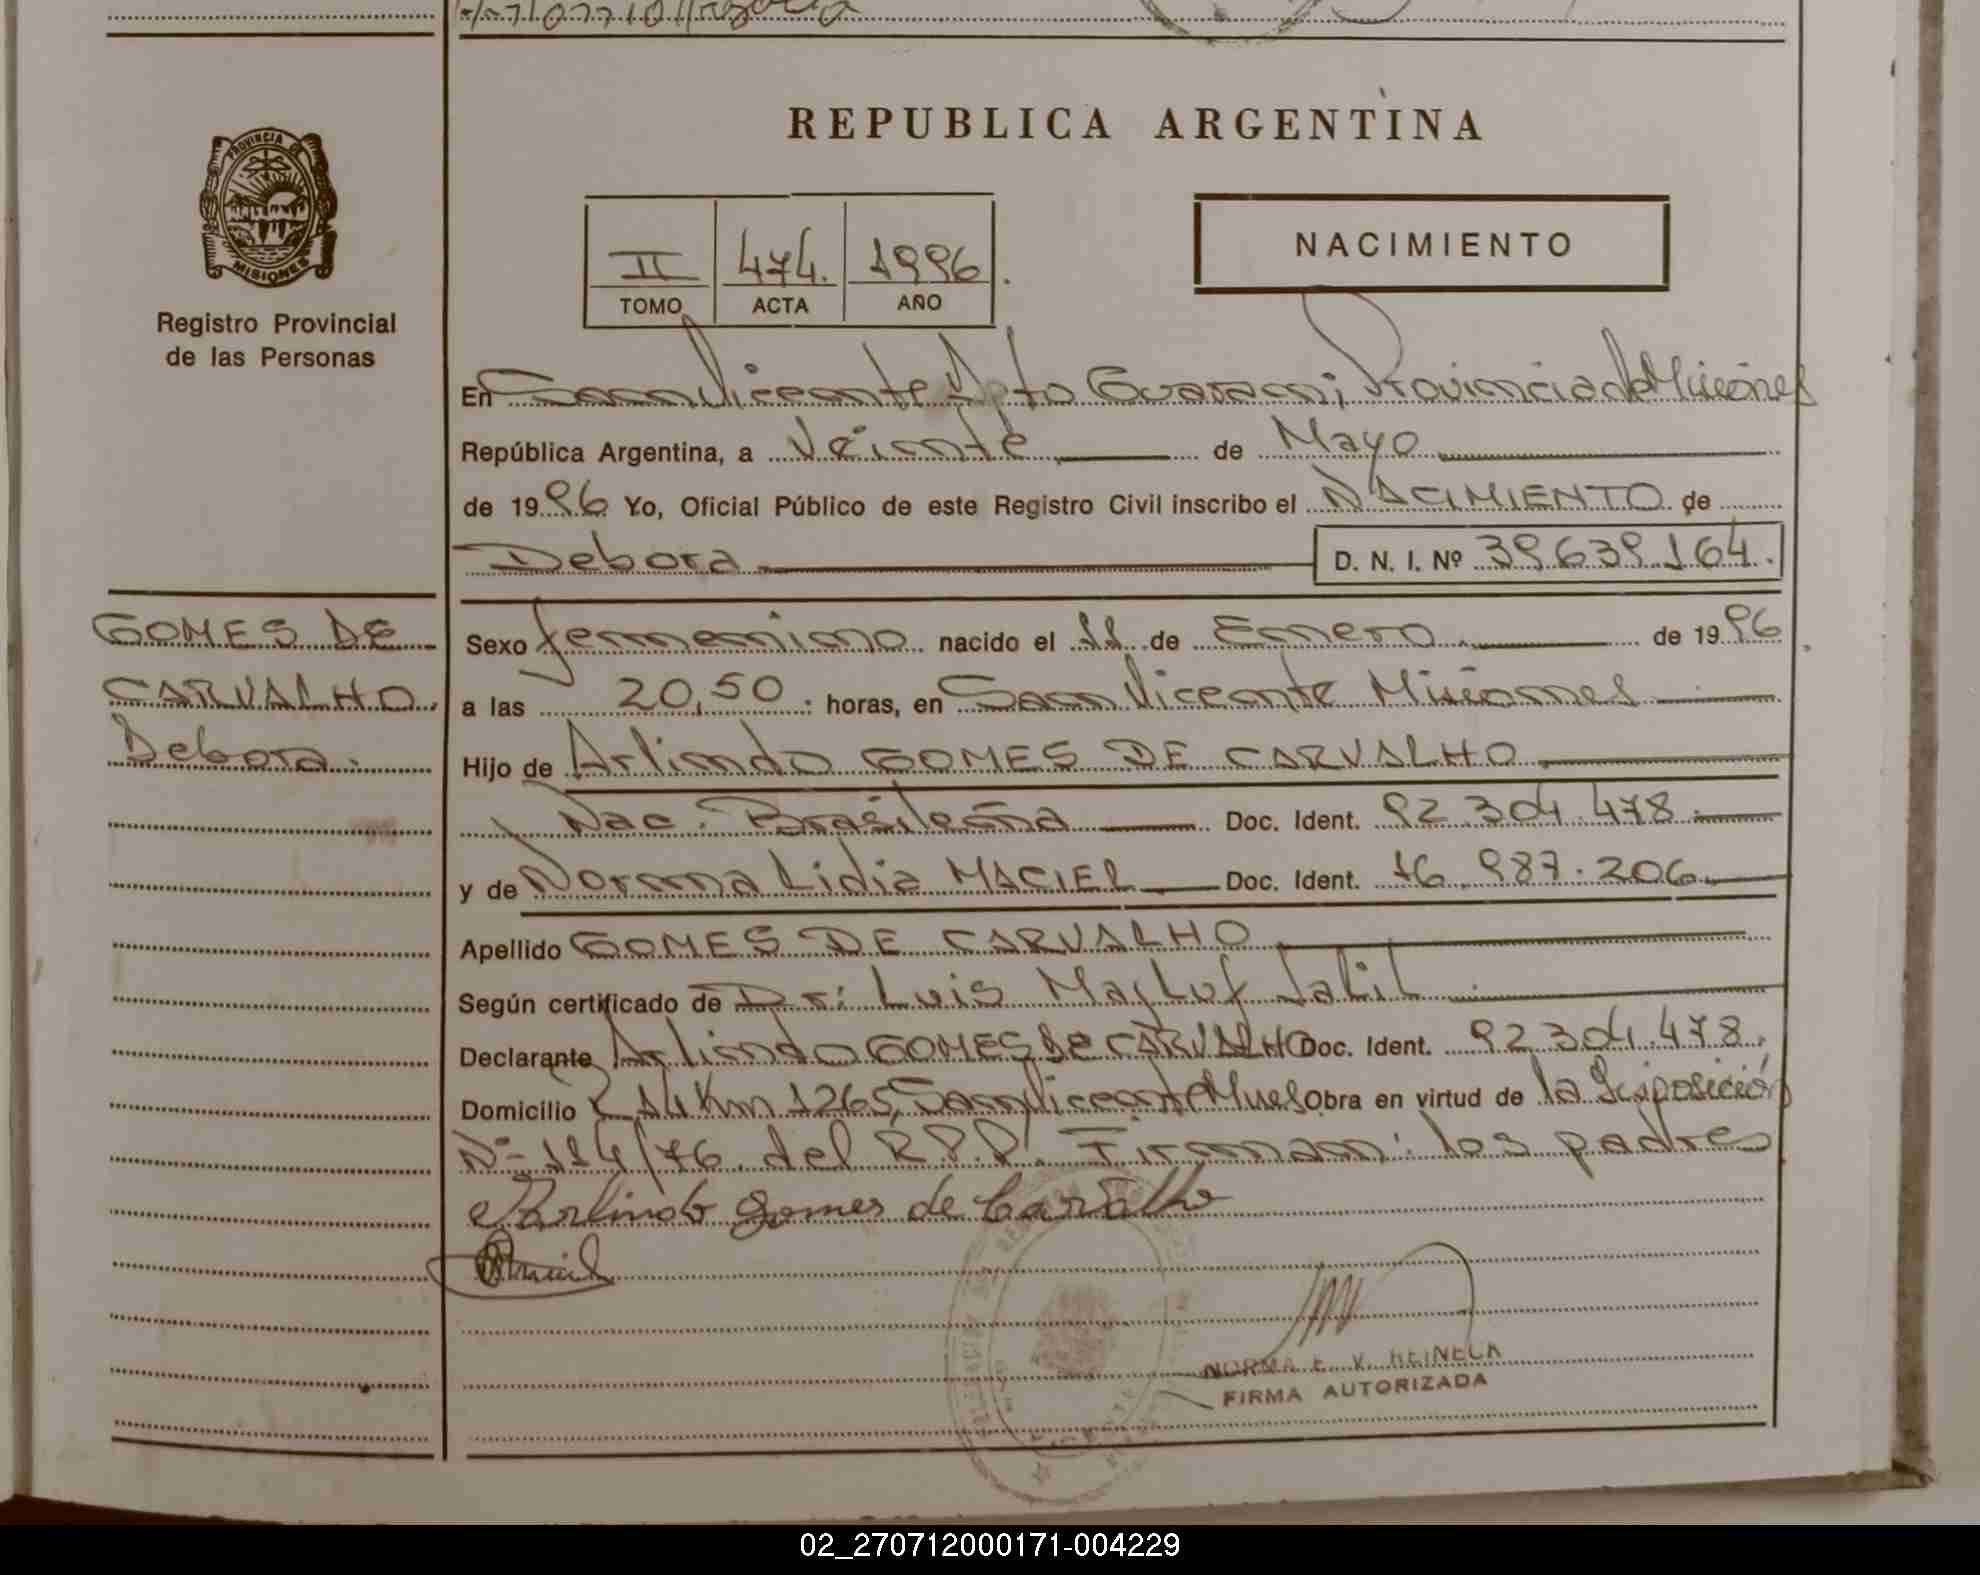 REPUBLICA ARGENTINA
PROVINCIA DE
MISIONES
Registro Provincial
de las Personas
II 474. 1996
TOMO ACTA AÑO
NACIMIENTO
En San Vicente Dpto Guarani, Provincia de Misiones
República Argentina, a Veinte de Mayo
de 1996 Yo, Oficial Público de este Registro Civil inscribo el NACIMIENTO de
Debora D. N. I. Nº 39.639.164.
GOMES DE
CARVALHO.
Debora.
Sexo femenino nacido el 11 de Enero de 1996
a las 20,50 horas, en San Vicente Misiones
Hijo de Arlindo GOMES DE CARVALHO
Nac. Brasileña Doc. Ident. 92.304.478
y de Norma Lidia MACIEL Doc. Ident. 16.987.206
Apellido GOMES DE CARVALHO
Según certificado de Dr: Luis Majluf Jalil
Declarante Arlindo GOMES De CARVALHO Doc. Ident. 92.304.478.
Domicilio R 14 Km 1265, San Vicente Mnes Obra en virtud de la Disposición
Nº 114/76 del R.P.P. Firman: los padres
Arlindo Gomes de Carvalho
NORMA E. V. REINECK
FIRMA AUTORIZADA
02_270712000171-004229